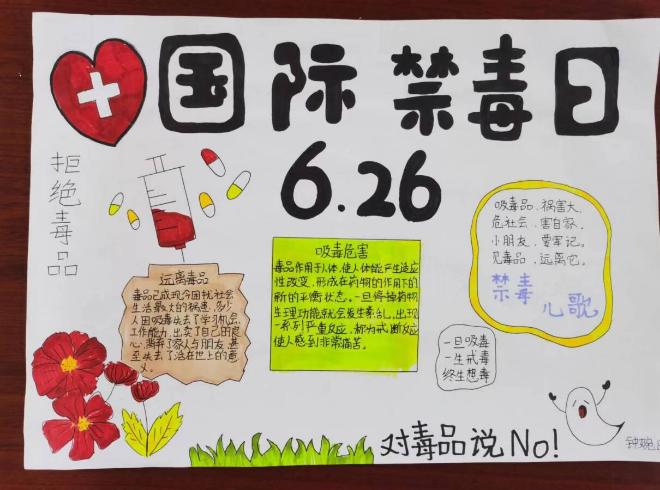 国际禁毒日
6.26
拒绝毒品
远离毒品
毒品已成现今困扰社会
生活最大的祸患，多少
人因吸毒失去了学习机会，
工作能力，出卖了自己的良
心，抛弃了家人与朋友，甚
至失去了活在世上的意
义。
吸毒危害
毒品作用于人体，使人体能产生适应
性改变，形成在药物的作用下的
新的平衡状态。一旦停掉药物，
生理功能就会发生紊乱，出现
一系列严重反应，称为戒断反应，
使人感到非常痛苦。
吸毒品，祸害大，
危社会，害自家，
小朋友，要牢记。
见毒品，远离它。
禁毒
儿歌
一旦吸毒
一生戒毒
终生想毒
对毒品说No!
钟婉